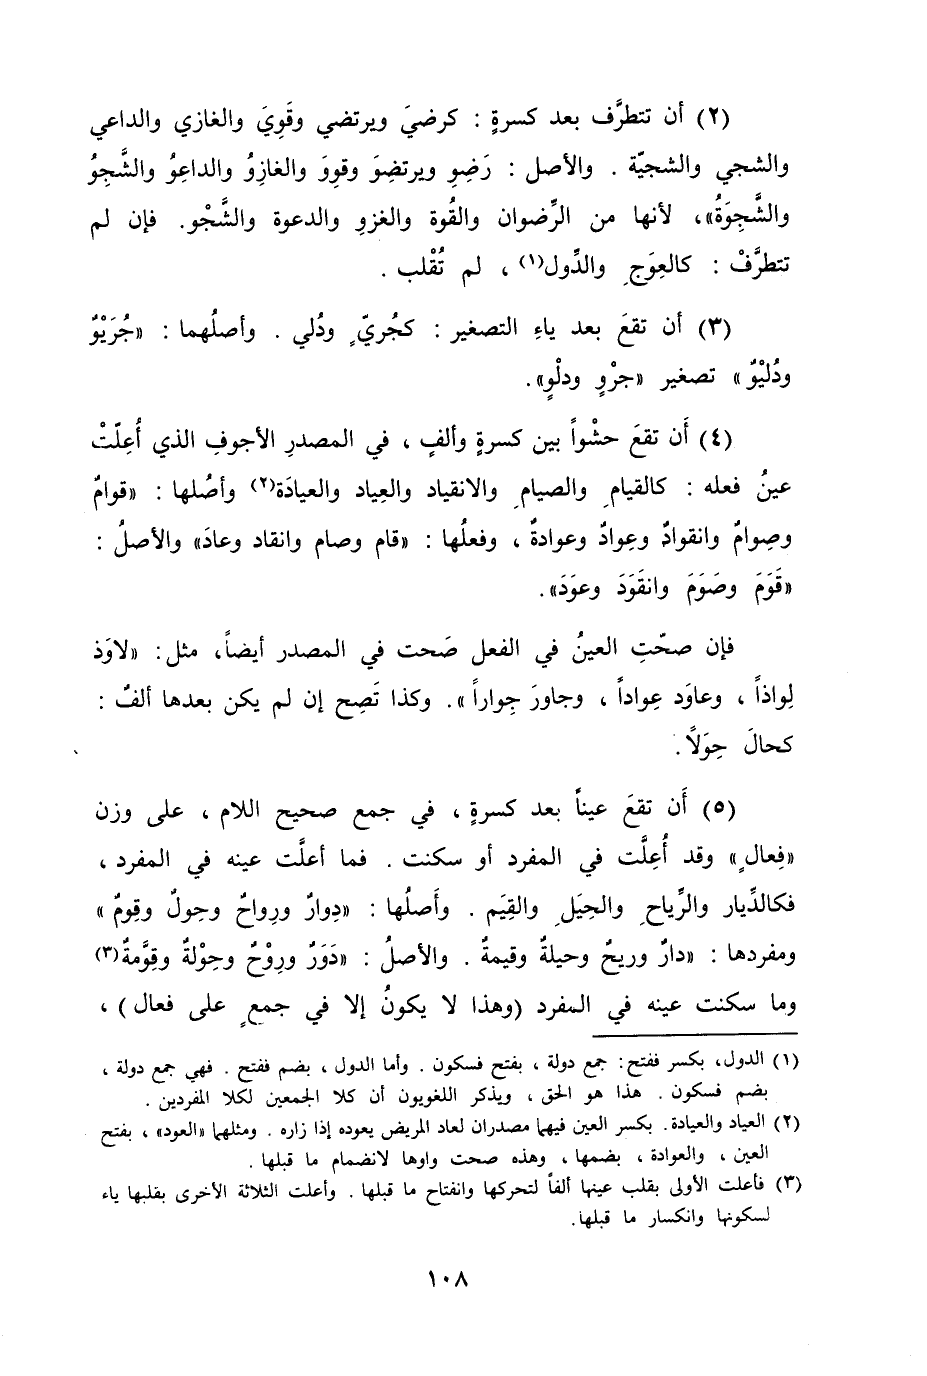 (٢) أن تتطرَّف بعد كسرةٍ : كرضيَ ويرتضي وقَوِيَ والغازي والداعي
والشجي والشجيّة . والأصل : رَضِوِ ويرتضِوَ وقوِوَ والغازِوُ والداعِوُ والشَّجِوُ
والشَّجِوَةُ»، لأنها من الرِّضوان والقُوة والغزوِ والدعوة والشَّجْو. فإن لم
تتطرَّفْ : كالعِوَجِ والدِّول(١) ، لم تُقْلب .
(٣) أن تقعَ بعد ياءِ التصغير : كجُريّ ٍ ودُلي . وأصلُهما : «جُرَيْوٌ
ودُليْوٌ» تصغير «جرْوٍ ودلْوٍ».
(٤) أَن تقعَ حشْواً بين كسرةٍ وألفٍ ، في المصدرِ الأجوفِ الذي أُعِلّتْ
عينُ فعله : كالقيامِ والصيامِ والانقياد والعِياد والعيادَة(٢) وأصُلها : «قوامٌ
وصِوامٌ وانقوادٌ وعِوادٌ وعوادةٌ ، وفعلُها : «قام وصام وانقاد وعادَ» والأصلُ :
«قَوَمَ وصَوَمَ وانقَوَدَ وعوَدَ».
فإن صحّتِ العينُ في الفعل صَحت في المصدر أيضاً، مثل: «لاوَذ
لِواذاً ، وعاوَد عِواداً ، وجاورَ جِواراً». وكذا تَصِح إن لم يكن بعدها ألفٌ :
كحالَ حِوَلاً.
(٥) أَن تقعَ عيناً بعد كسرةٍ ، في جمع صحيح اللام ، على وزن
«فِعالٍ» وقد أُعِلَّت في المفرد أو سكنت . فما أعلَّت عينه في المفرد ،
فكالدِّيار والرِّياحِ والحِيَلِ والقِيَم . وأَصلُها : «دِوارٌ ورِواحٌ وحِولٌ وقِومٌ»
ومفردها : «دارٌ وريحٌ وحيلةٌ وقيمةٌ . والأصلُ : «دَوَرٌ ورِوْحٌ وحِوْلةٌ وقِوَّمةٌ(٣)
وما سكنت عينه في المفرد (وهذا لا يكونُ إلا في جمعٍ على فعال) ،
(١) الدول، بكسر ففتح: جمع دولة ، بفتح فسكون . وأما الدول ، بضم ففتح . فهي جمع دولة ،
بضم فسكون . هذا هو الحق ، ويذكر اللغويون أن كلا الجمعين لكلا المفردين .
(٢) العياد والعيادة. بكسر العين فيهما مصدران لعاد المريض يعوده إذا زاره . ومثلهما «العود» ، بفتح
العين ، والعوادة ، بضمها ، وهذه صحت واوها لانضمام ما قبلها .
(٣) فأعلت الأولى بقلب عينها ألفاً لتحركها وانفتاح ما قبلها . وأعلت الثلاثة الأخرى بقلبها ياء
لسكونها وانكسار ما قبلها.
١٠٨